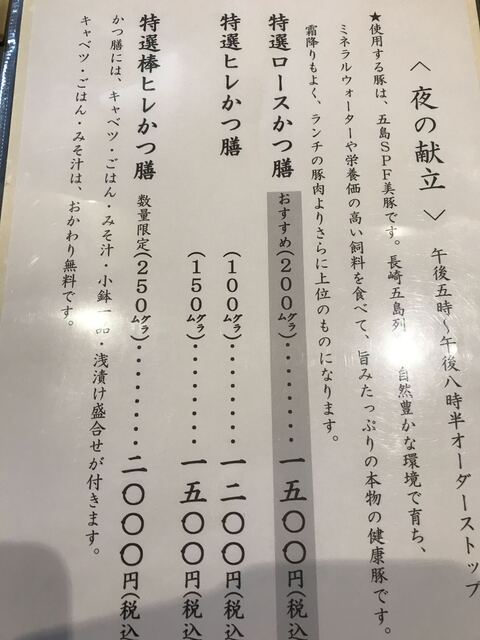 〈 夜の献立 〉 午後五時～午後八時半オーダーストップ
★使用する豚は、五島SPF美豚です。長崎五島列 自然豊かな環境で育ち、
ミネラルウォーターや栄養価の高い飼料を食べて、旨みたっぷりの本物の健康豚です。
霜降りもよく、ランチの豚肉よりさらに上位のものになります。
特選ロースかつ膳 おすすめ(200グラム)・・・・・・・一五〇〇円(税込
特選ヒレかつ膳 (100グラム)・・・・・・・一二〇〇円(税込
(150グラム)・・・・・・・一五〇〇円(税込
特選棒ヒレかつ膳 数量限定(250グラム)・・・・・・・二〇〇〇円(税込
かつ膳には、キャベツ・ごはん・みそ汁・小鉢一品・浅漬け盛合せが付きます。
キャベツ・ごはん・みそ汁は、おかわり無料です。